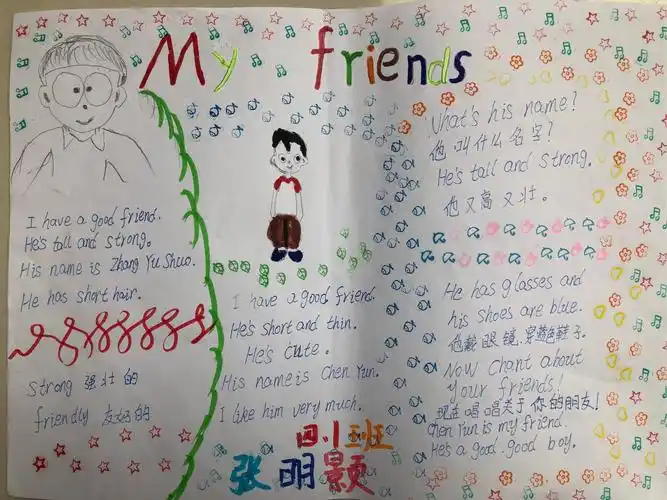 My friends
I have a good friend.
He's tall and strong.
His name is Zhang Yu Shuo.
He has short hair.
strong 强壮的
friendly 友好的
I have a good friend.
He's short and thin.
He's cute.
His name is Chen Yun.
I like him very much.
四.1班
张明颢
What's his name?
他叫什么名字?
He's tall and strong.
他又高又壮。
He has glasses and
his shoes are blue.
他戴眼镜,穿蓝色鞋子。
Now chant about
your friends!
现在唱唱关于你的朋友!
Chen Yun is my friend.
He's a good good boy.